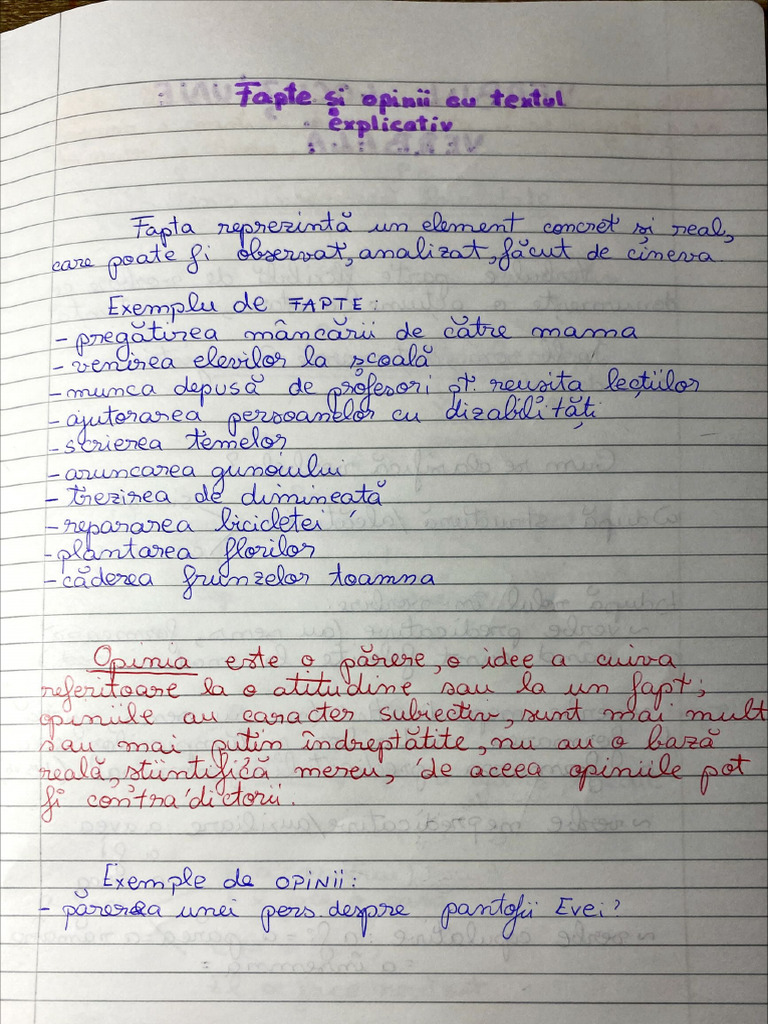 Fapte și opinii cu textul
explicativ
Fapta reprezintă un element concret și real,
care poate fi observat, analizat, făcut de cineva.
Exemplu de FAPTE:
- pregătirea mâncării de către mama
- venirea elevilor la școală
- munca depusă de profesori pt. reușita lecțiilor
- ajutorarea persoanelor cu dizabilități
- scrierea temelor
- aruncarea gunoiului
- trezirea de dimineață
- repararea bicicletei
- plantarea florilor
- căderea frunzelor toamna
Opinia este o părere, o idee a cuiva
referitoare la o atitudine sau la un fapt;
opiniile au caracter subiectiv, sunt mai mult
sau mai puțin îndreptățite, nu au o bază
reală, științifică mereu, de aceea opiniile pot
fi contradictorii.
Exemple de OPINII:
- părerea unei pers. despre pantofii Evei?